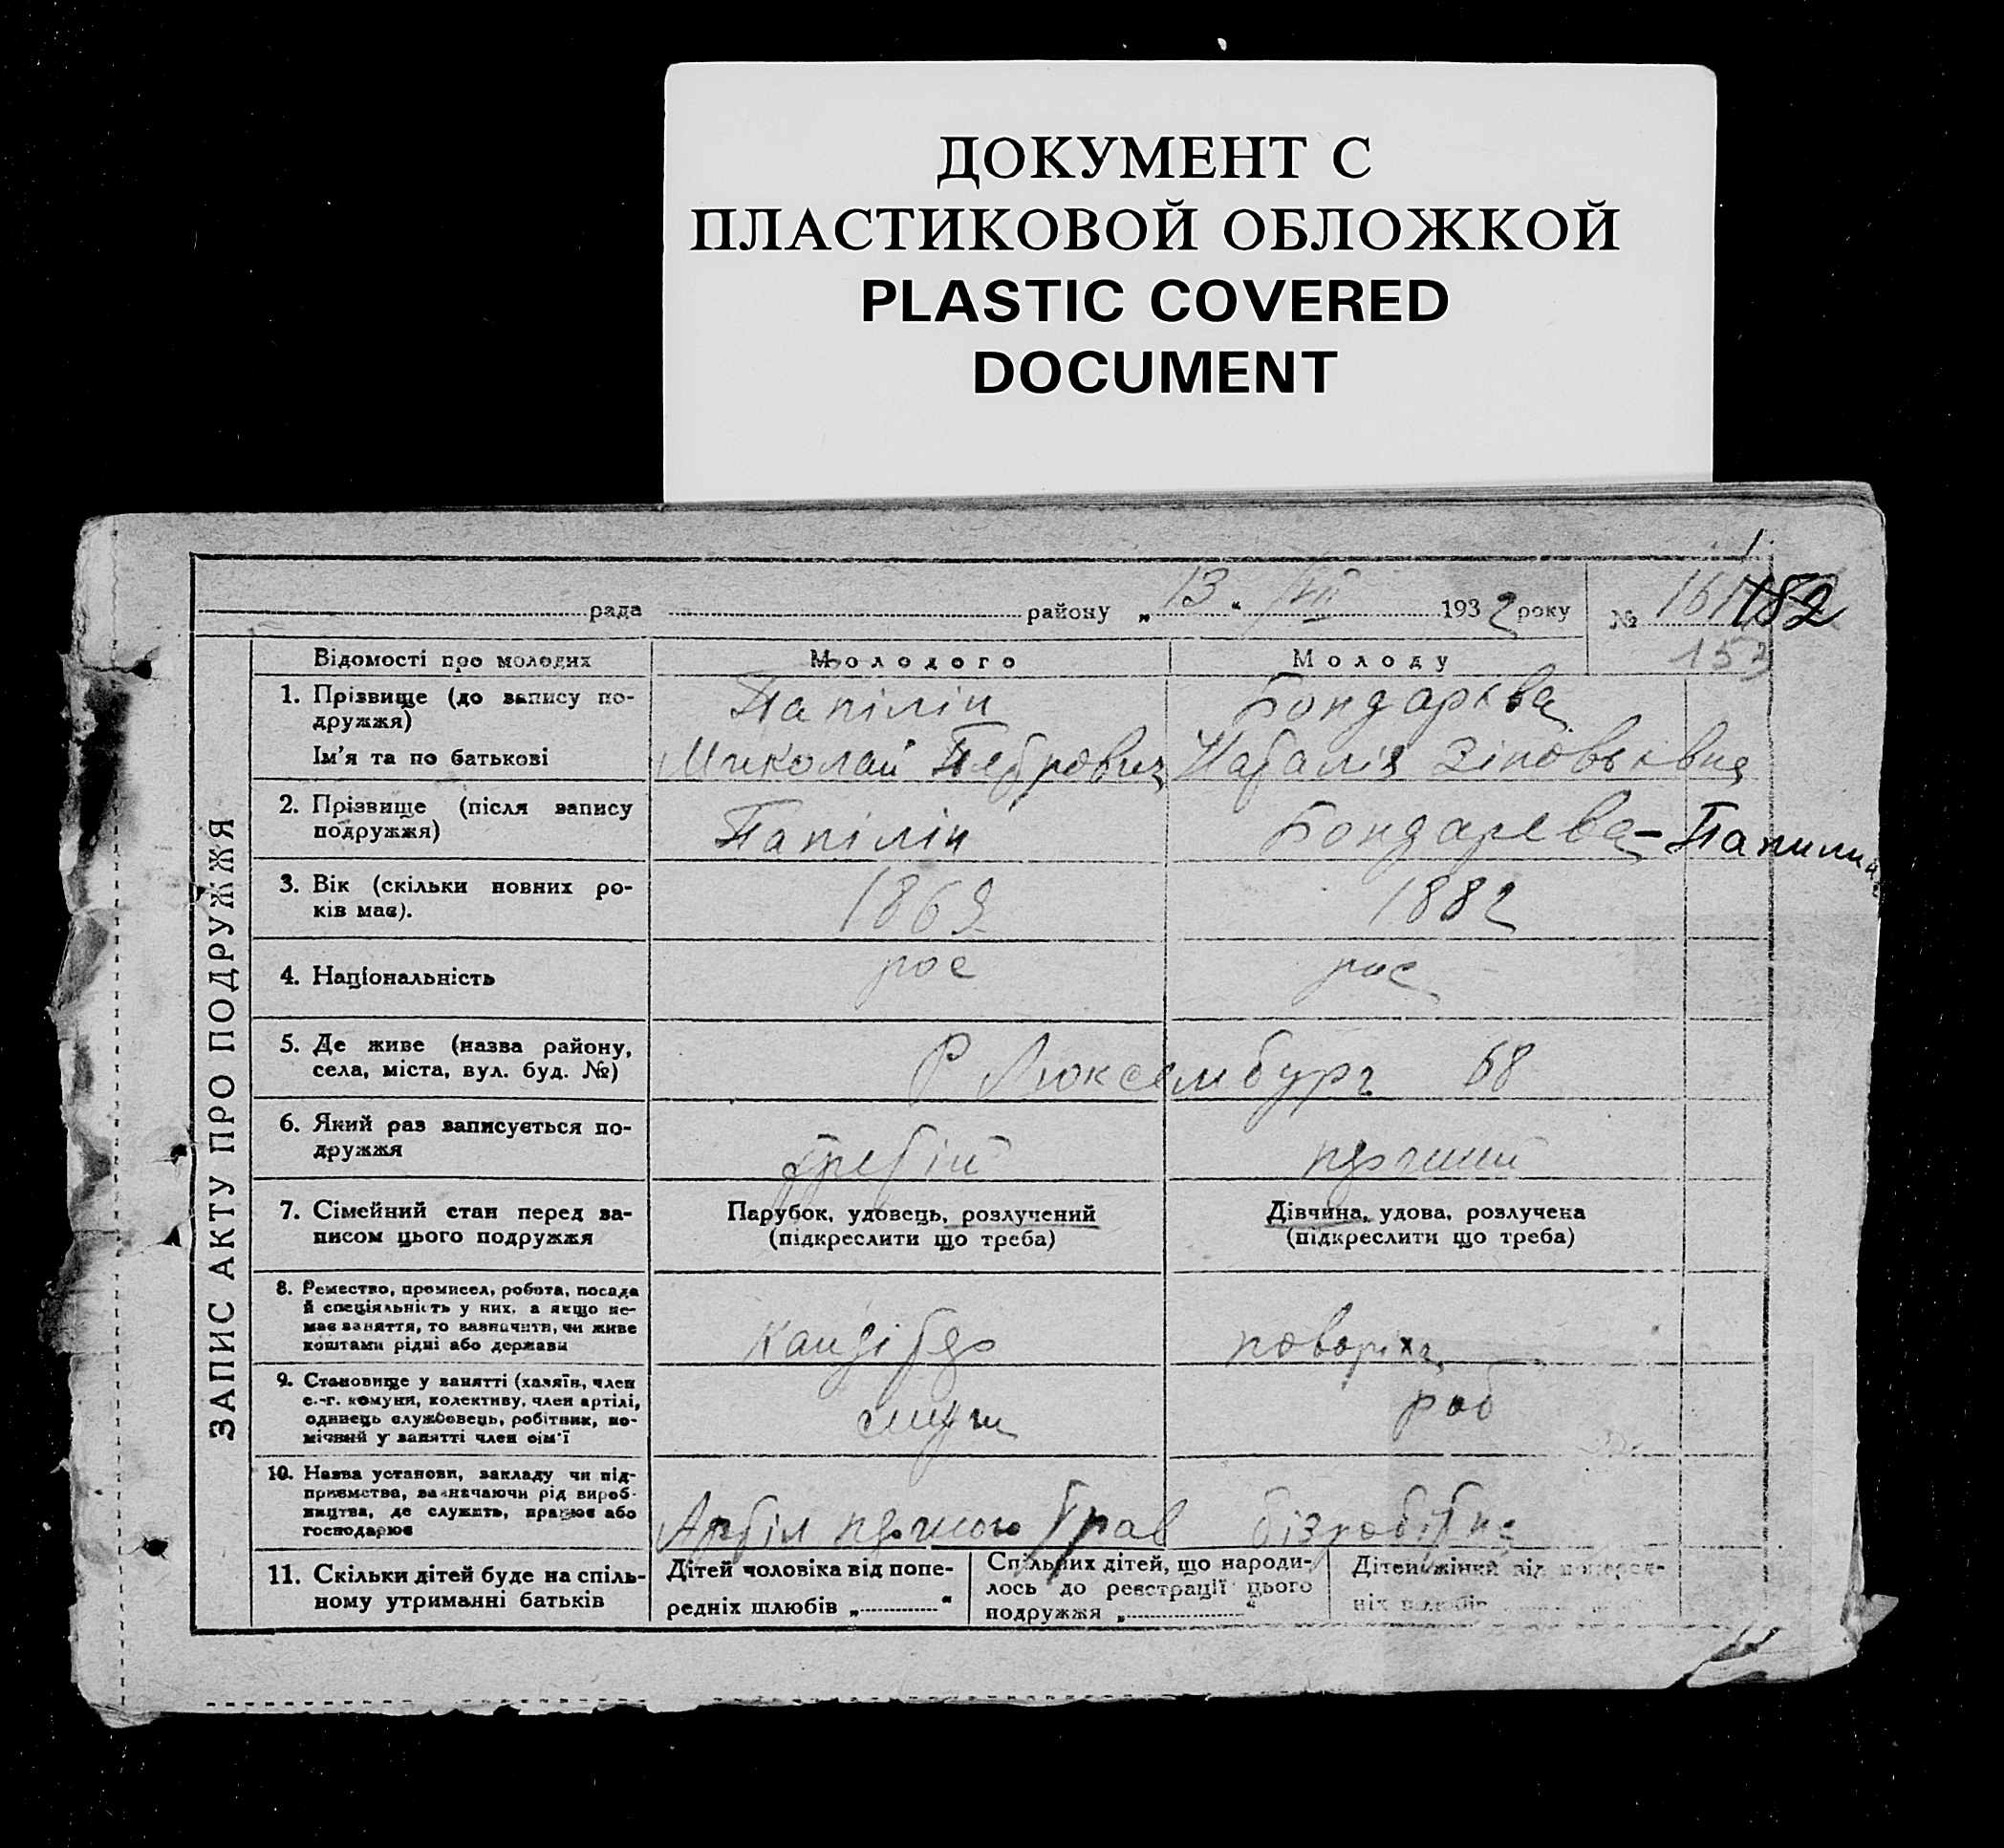 ДОКУМЕНТ С
ПЛАСТИКОВОЙ ОБЛОЖКОЙ
PLASTIC COVERED
DOCUMENT
рада району „ 13 “ VII 1932 року № 161 152
152
Відомості про молодих Молодого Молоду
1. Прізвище (до запису по-
дружжя) Папілін Бондарєва
Ім'я та по батькові Миколай Петрович Наталія Зіновьівна
2. Прізвище (після запису
подружжя) Папілін Бондарева - Папилина
3. Вік (скільки повних ро-
ків має). 1869 1882
4. Національність рос рос
5. Де живе (назва району,
села, міста, вул. буд. №) Р Люксембург 68
6. Який раз записується по-
дружжя третій перший
7. Сімейний стан перед за-
писом цього подружжя
Парубок, удовець, розлучений
(підкреслити що треба)
Дівчина, удова, розлучена
(підкреслити що треба)
8. Ремество, промисел, робота, посада
й спеціяльність у них, а якщо не-
має заняття, то зазначити, чи живе
коштами рідні або держави
кандітер повариха
9. Становище у занятті (хазяїн, член
с.-г. комуни, колективу, член артілі,
одинець службовець, робітник, по-
мічний у занятті член сім'ї
служ роб
10. Назва установи, закладу чи під-
приємства, зазначаючи рід вироб-
ництва, де служить, працює або
господарює
Артіл першого Трав бізробітна
11. Скільки дітей буде на спіль-
ному утриманні батьків
Дітей чоловіка від попе-
редніх шлюбів „ “
Спільних дітей, що народи-
лось до реєстрації цього
подружжя „ “
Дітей жінки від поперед-
ніх шлюбів
ЗАПИС АКТУ ПРО ПОДРУЖЖЯ